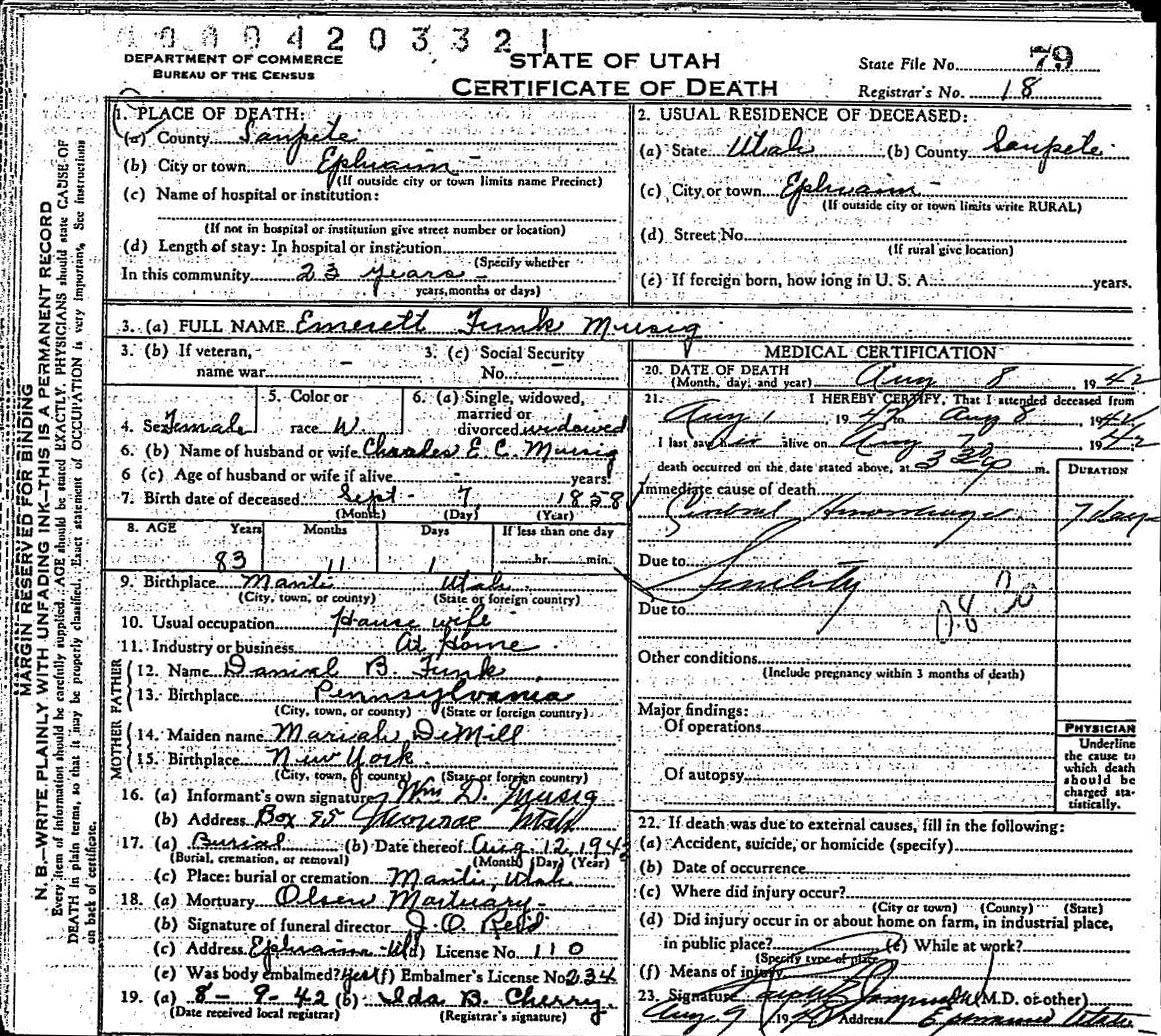 00094203321
DEPARTMENT OF COMMERCE
BUREAU OF THE CENSUS
STATE OF UTAH
CERTIFICATE OF DEATH
State File No. 79
Registrar's No. 18
MARGIN RESERVED FOR BINDING
N. B.—WRITE PLAINLY WITH UNFADING INK—THIS IS A PERMANENT RECORD
Every item of information should be carefully supplied. AGE should be stated EXACTLY. PHYSICIANS should state CAUSE OF
DEATH in plain terms, so that it may be properly classified. Exact statement of OCCUPATION is very important. See instructions
on back of certificate.
1. PLACE OF DEATH:
(a) County Sanpete
(b) City or town Ephraim
(If outside city or town limits name Precinct)
(c) Name of hospital or institution:
(If not in hospital or institution give street number or location)
(d) Length of stay: In hospital or institution
(Specify whether
In this community 23 years
years, months or days)
2. USUAL RESIDENCE OF DECEASED:
(a) State Utah (b) County Sanpete
(c) City or town Ephraim
(If outside city or town limits write RURAL)
(d) Street No.
(If rural give location)
(e) If foreign born, how long in U. S. A. years.
3. (a) FULL NAME Emerett Funk Musig
3. (b) If veteran, name war –
3. (c) Social Security No. –
4. Sex Female
5. Color or race W.
6. (a) Single, widowed, married or divorced widowed
6. (b) Name of husband or wife Charles E. C. Musig
6 (c) Age of husband or wife if alive years.
7. Birth date of deceased Sept - 7 1858
(Month) (Day) (Year)
8. AGE Years Months Days If less than one day
83 11 1 hr. min.
9. Birthplace Manti Utah
(City, town, or county) (State or foreign country)
10. Usual occupation House wife
11. Industry or business At Home
FATHER
12. Name Danial B. Funk
13. Birthplace Pennsylvania
(City, town, or county) (State or foreign country)
MOTHER
14. Maiden name Mariah DeMill
15. Birthplace New York
(City, town, or county) (State or foreign country)
16. (a) Informant's own signature Wm D. Musig
(b) Address Box 95 Monroe Utah
17. (a) Burial (b) Date thereof Aug. 12, 1942
(Burial, cremation, or removal) (Month) (Day) (Year)
(c) Place: burial or cremation Manti, Utah
18. (a) Mortuary Olsen Mortuary
(b) Signature of funeral director J. O. Reid
(c) Address Ephraim Ut (d) License No. 110
(e) Was body embalmed? Yes (f) Embalmer's License No. 234
19. (a) 8-9-42 (b) Ida B. Cherry.
(Date received local registrar) (Registrar's signature)
MEDICAL CERTIFICATION
20. DATE OF DEATH
(Month, day, and year) Aug 8, 1942
21. I HEREBY CERTIFY, That I attended deceased from
Aug 1 1942 to Aug 8, 1942
I last saw her alive on Aug 1942
death occurred on the date stated above, at 3 30 p m.
DURATION
Immediate cause of death
Hemorrhage 7 days
Due to
Senility
Due to
Other conditions
(Include pregnancy within 3 months of death)
Major findings:
Of operations
Of autopsy
PHYSICIAN
Underline
the cause to
which death
should be
charged sta-
tistically.
22. If death was due to external causes, fill in the following:
(a) Accident, suicide, or homicide (specify)
(b) Date of occurrence
(c) Where did injury occur?
(City or town) (County) (State)
(d) Did injury occur in or about home on farm, in industrial place,
in public place? (e) While at work?
(Specify type of place)
(f) Means of injury
23. Signature (M.D. or other)
Aug 9 1942 Address Ephraim Utah